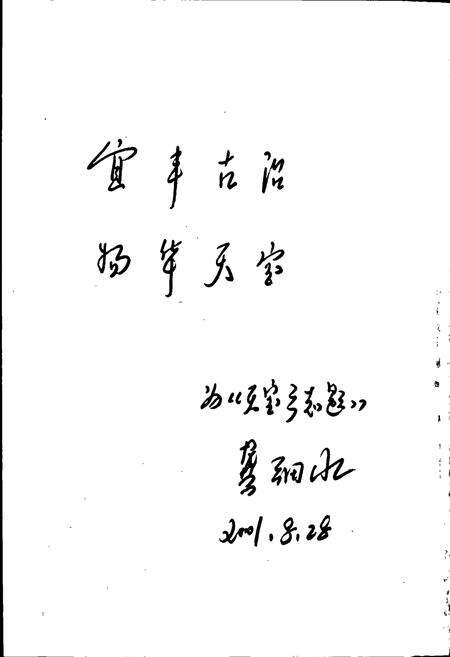 宜丰古治
物华天宝
为《天宝乡志题》
龚细水
2001.8.28